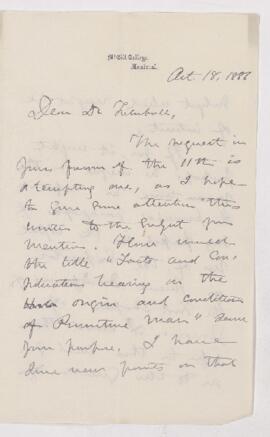 McGill College,
Montreal.
Oct. 18, 188
Dear Dr
The request in
your favour of the 11th is
a tempting one, as I hope
to give some attention this
winter to the subject you
mention. How would
the title "Facts and Con
siderations bearing on the
origin and condition
of Primitive Man" serve
your purpose. I have
some new points on that